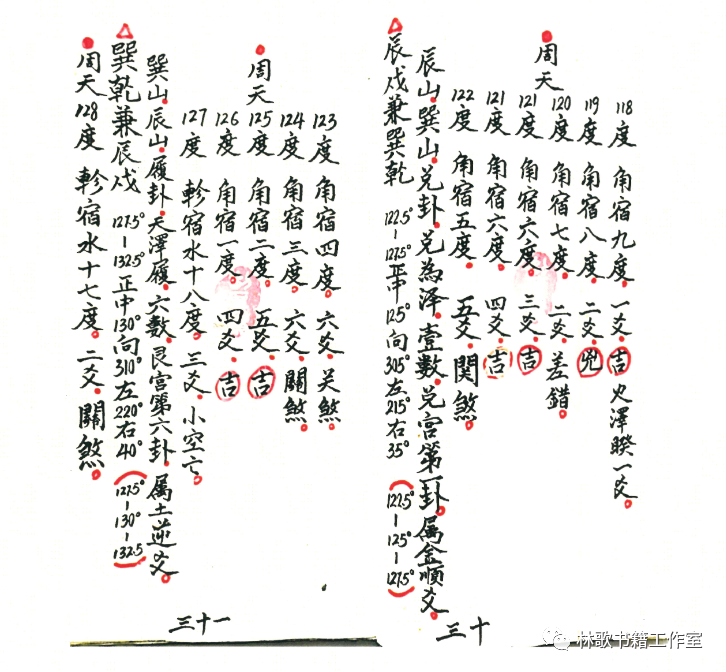 周天
118度 角宿九度。一爻。吉 火泽睽一爻。
119度 角宿八度。二爻。凶
120度 角宿七度。二爻。差錯。
121度 角宿六度。三爻。吉
121度 角宿六度。四爻。吉
122度 角宿五度。五爻。関煞。
辰山。巽山。兑卦。兑為泽。壹數。兑宫第一卦。属金順爻。
辰戌兼巽乾 122.5°-127.5°正中125°向305°左215°右35°(122.5°-125°-127.5°)
三十
周天
123度 角宿四度。六爻。关煞。
124度 角宿三度。六爻。關煞。
125度 角宿二度。五爻。吉
126度 角宿一度。四爻。吉
127度 軫宿水十八度。三爻。小空亡。
巽山。辰山。履卦。天泽履。六數。艮宫第六卦。属土逆爻。
巽乾兼辰戌 127.5°-132.5°正中130°向310°左220°右40°(127.5°-130°-132.5)
周天128度 軫宿水十七度。二爻。關煞。
三十一
林歌书籍工作室